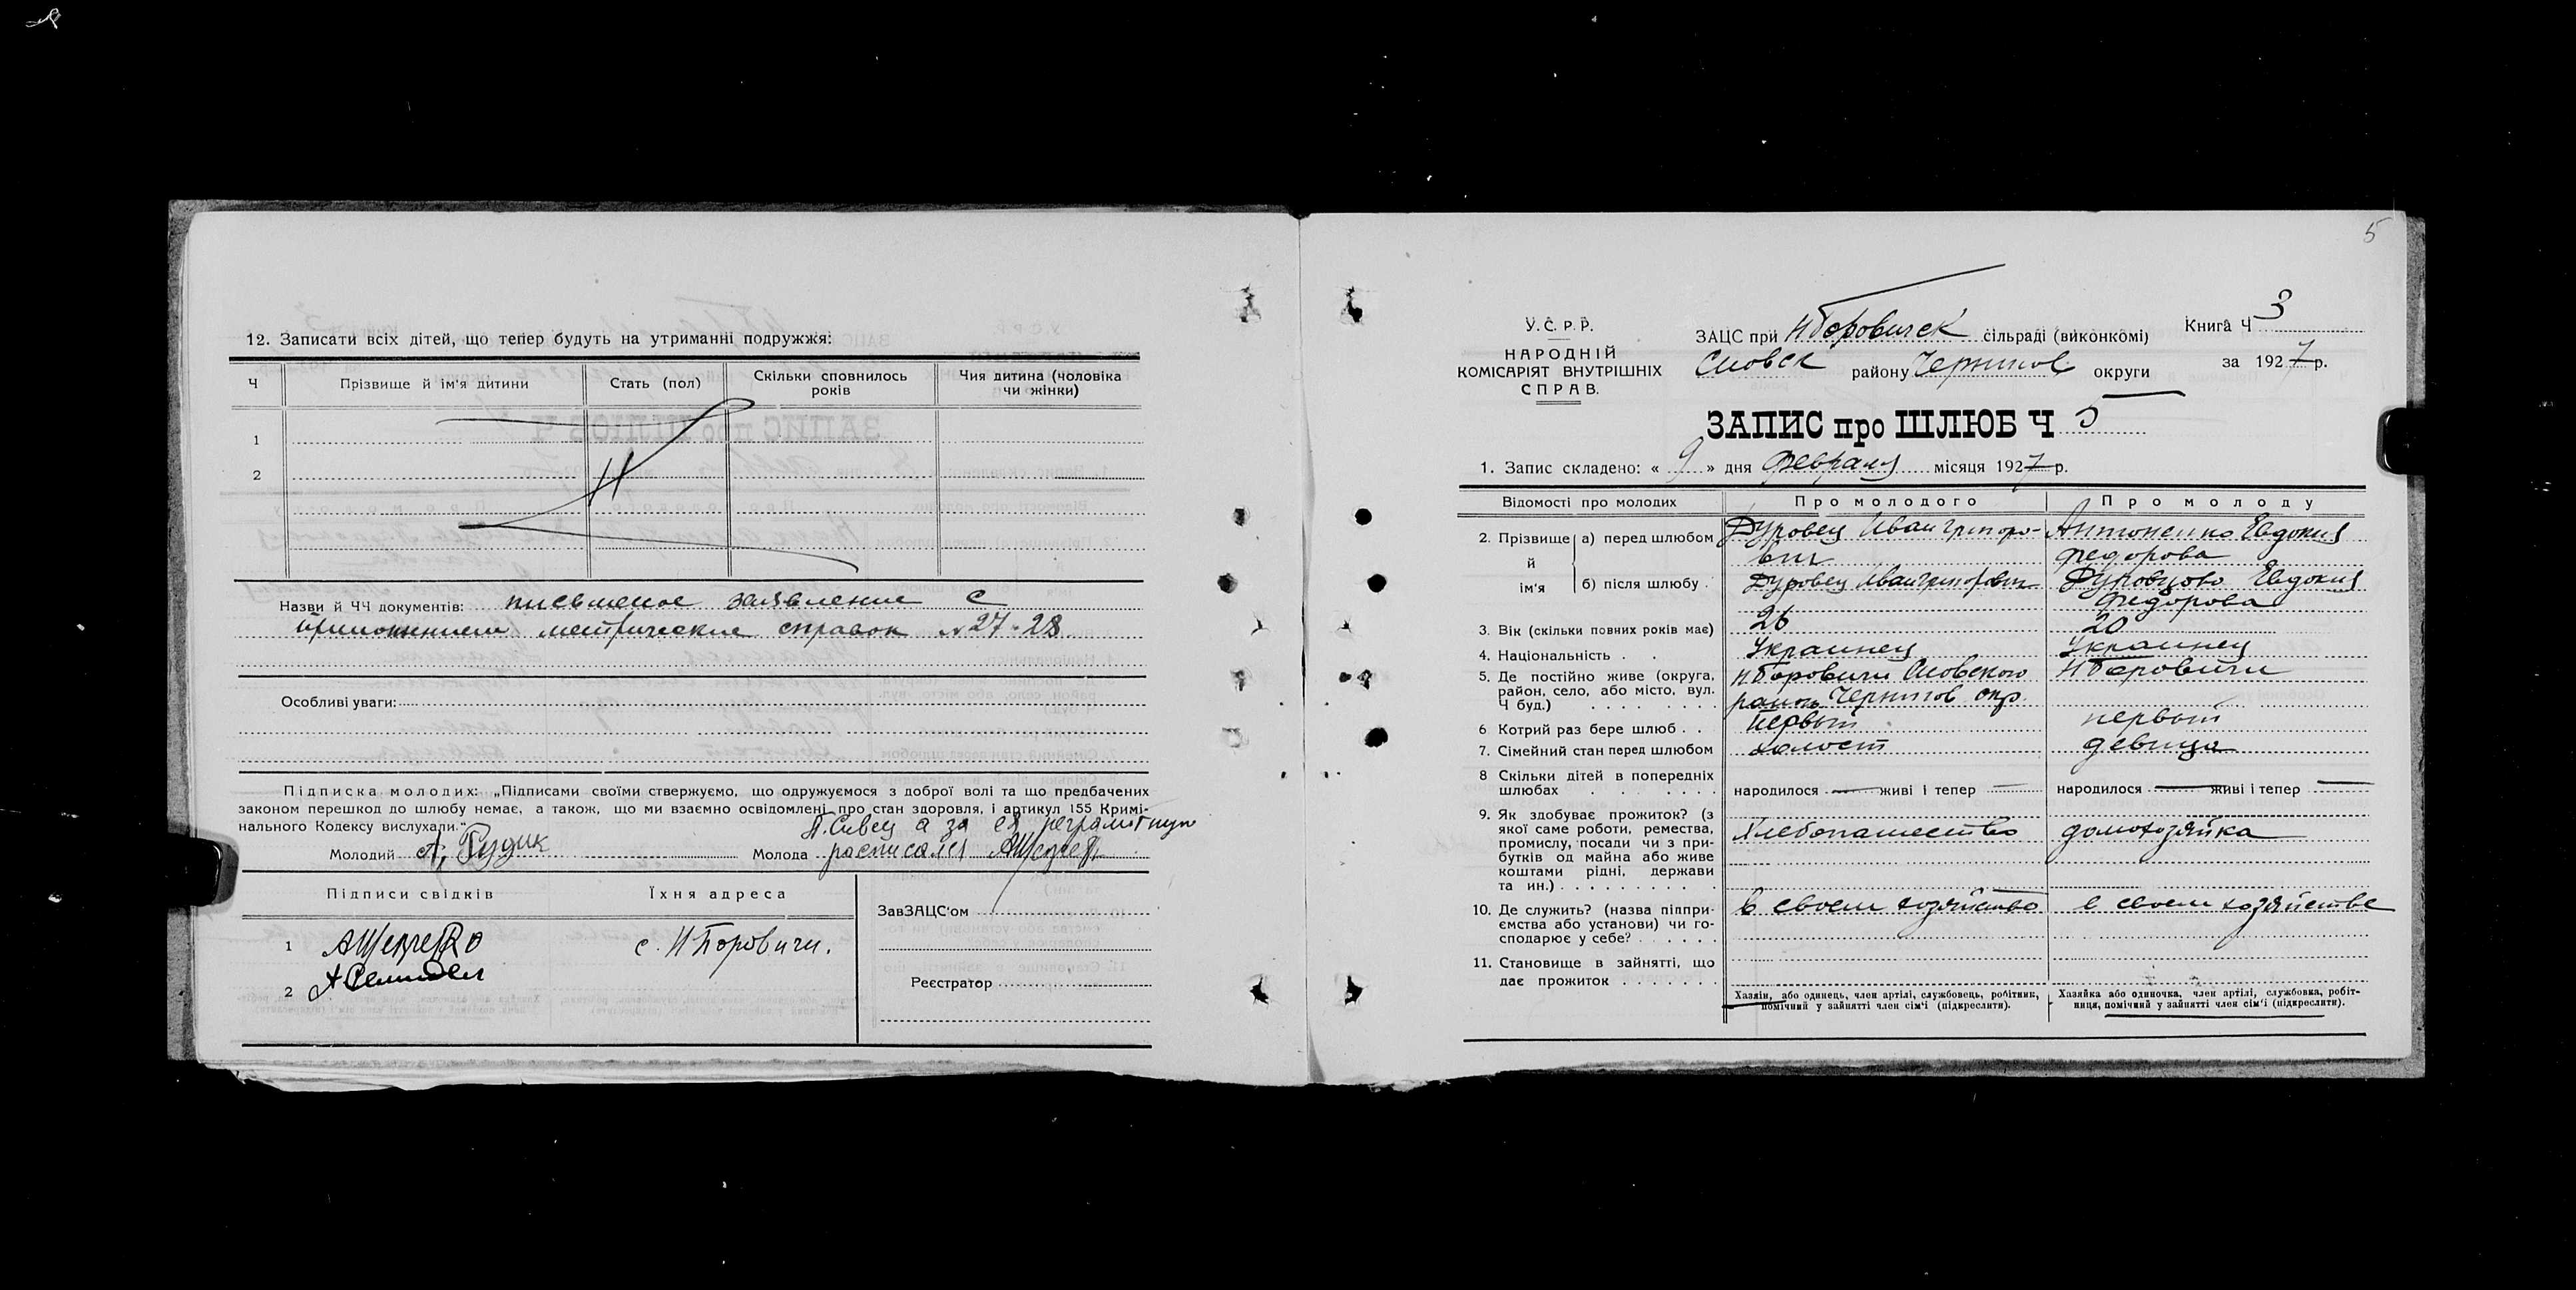 12. Записати всіх дітей, що тепер будуть на утриманні подружжя:
Ч
Прізвище й ім'я дитини
Стать (пол)
Скільки сповнилось років
Чия дитина (чоловіка чи жінки)
1
2
Назви й ЧЧ документів: письменое заявление с
приложением метрические справок №27-28
Особливі уваги:
Підписка молодих: „Підписами своїми ствержуємо, що одружуємося з доброї волі та що предбачених
законом перешкод до шлюбу немає, а також, що ми взаємно освідомлені про стан здоровля, і артикул 155 Кримі-
нального Кодексу вислухали."
П. Сивец а за ея неграмотную
Молодий А. Гудик Молода расписался
Підписи свідків
Їхня адреса
1
с. Н Боровичи.
2
ЗавЗАЦС'ом
Реєстратор
5
У. С. Р. Р.
НАРОДНІЙ
КОМІСАРІЯТ ВНУТРІШНІХ
СПРАВ.
ЗАЦС при Н Боровичск сільраді (виконкомі)
Сновск району Чернигов округи
Книга Ч 3
за 1927 р.
ЗАПИС про ШЛЮБ Ч 5
1. Запис складено: « 9 » дня февраля місяця 1927 р.
Відомості про молодих
Про молодого
Про молоду
2. Прізвище й ім'я
а) перед шлюбом
Дуровец Иван Григоро-
вич
Антоненко Евдокия
Федорова
б) після шлюбу
Дуровец Иван Григорович
Дуровцово Евдокия
Федорова
3. Вік (скільки повних років має)
26
20
4. Національність
Украинец
Украинец
5. Де постійно живе (округа,
район, село, або місто, вул.
Ч буд.)
Н Боровичи Сновского
района Чернигов окр.
Н Боровичи
6 Котрий раз бере шлюб
первый
первый
7. Сімейний стан перед шлюбом
холост
девица
8 Скільки дітей в попередніх
шлюбах
народилося — живі і тепер —
народилося — живі і тепер —
9. Як здобуває прожиток? (з
якої саме роботи, ремества,
промислу, посади чи з при-
бутків од майна або живе
коштами рідні, держави
та ин.)
Хлебопашество
домохозяйка
10. Де служить? (назва підпри-
ємства або установи) чи го-
сподарює у себе?
в своем хозяйство
в своем хозяйстве
11. Становище в зайнятті, що
дає прожиток
Хазяїн, або одинець, член артілі, службовець, робітник,
помічний у зайнятті член сім'ї (підкреслити).
Хазяйка або одиночка, член артілі, службовка, робіт-
ниця, помічний у зайнятті член сім'ї (підкреслити).